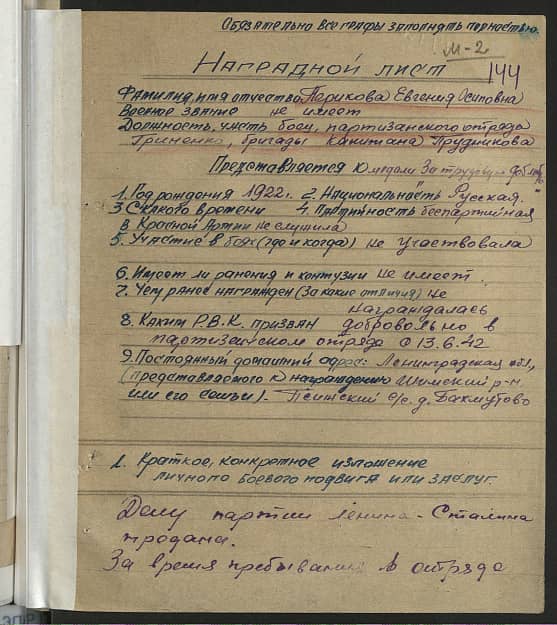 Обязательно все графы заполнять полностью.
М-2
Наградной лист 144
Фамилия, имя отчество Парикова Евгения Осиповна
Военное звание не имеет
Должность, часть боец, партизанского отряда
Гриненко, бригады Капитана Прудникова
Представляется к медали За трудовую доблесть"
1. Год рождения 1922 г. 2. Национальность Русская.
3 С какого времени 4. Партийность беспартийная
в Красной Армии не служила
5. Участие в боях (где и когда) не участвовала
6. Имеет ли ранения и контузии не имеет
7. Чем ранее награжден (За какие отличия) не
награждалась
8. Каким Р.В.К. призван добровольно в
партизанском отряде с 13.6.42
9. Постоянный домашний адрес: Ленинградская обл.,
(представляемого к награждению Шимский р-н
или его семьи). - Псижский с/с. д. Бахмутово
1. Краткое, конкретное изложение
личного боевого подвига или заслуг.
Делу партии Ленина - Сталина
предана.
За время пребывания в отряде